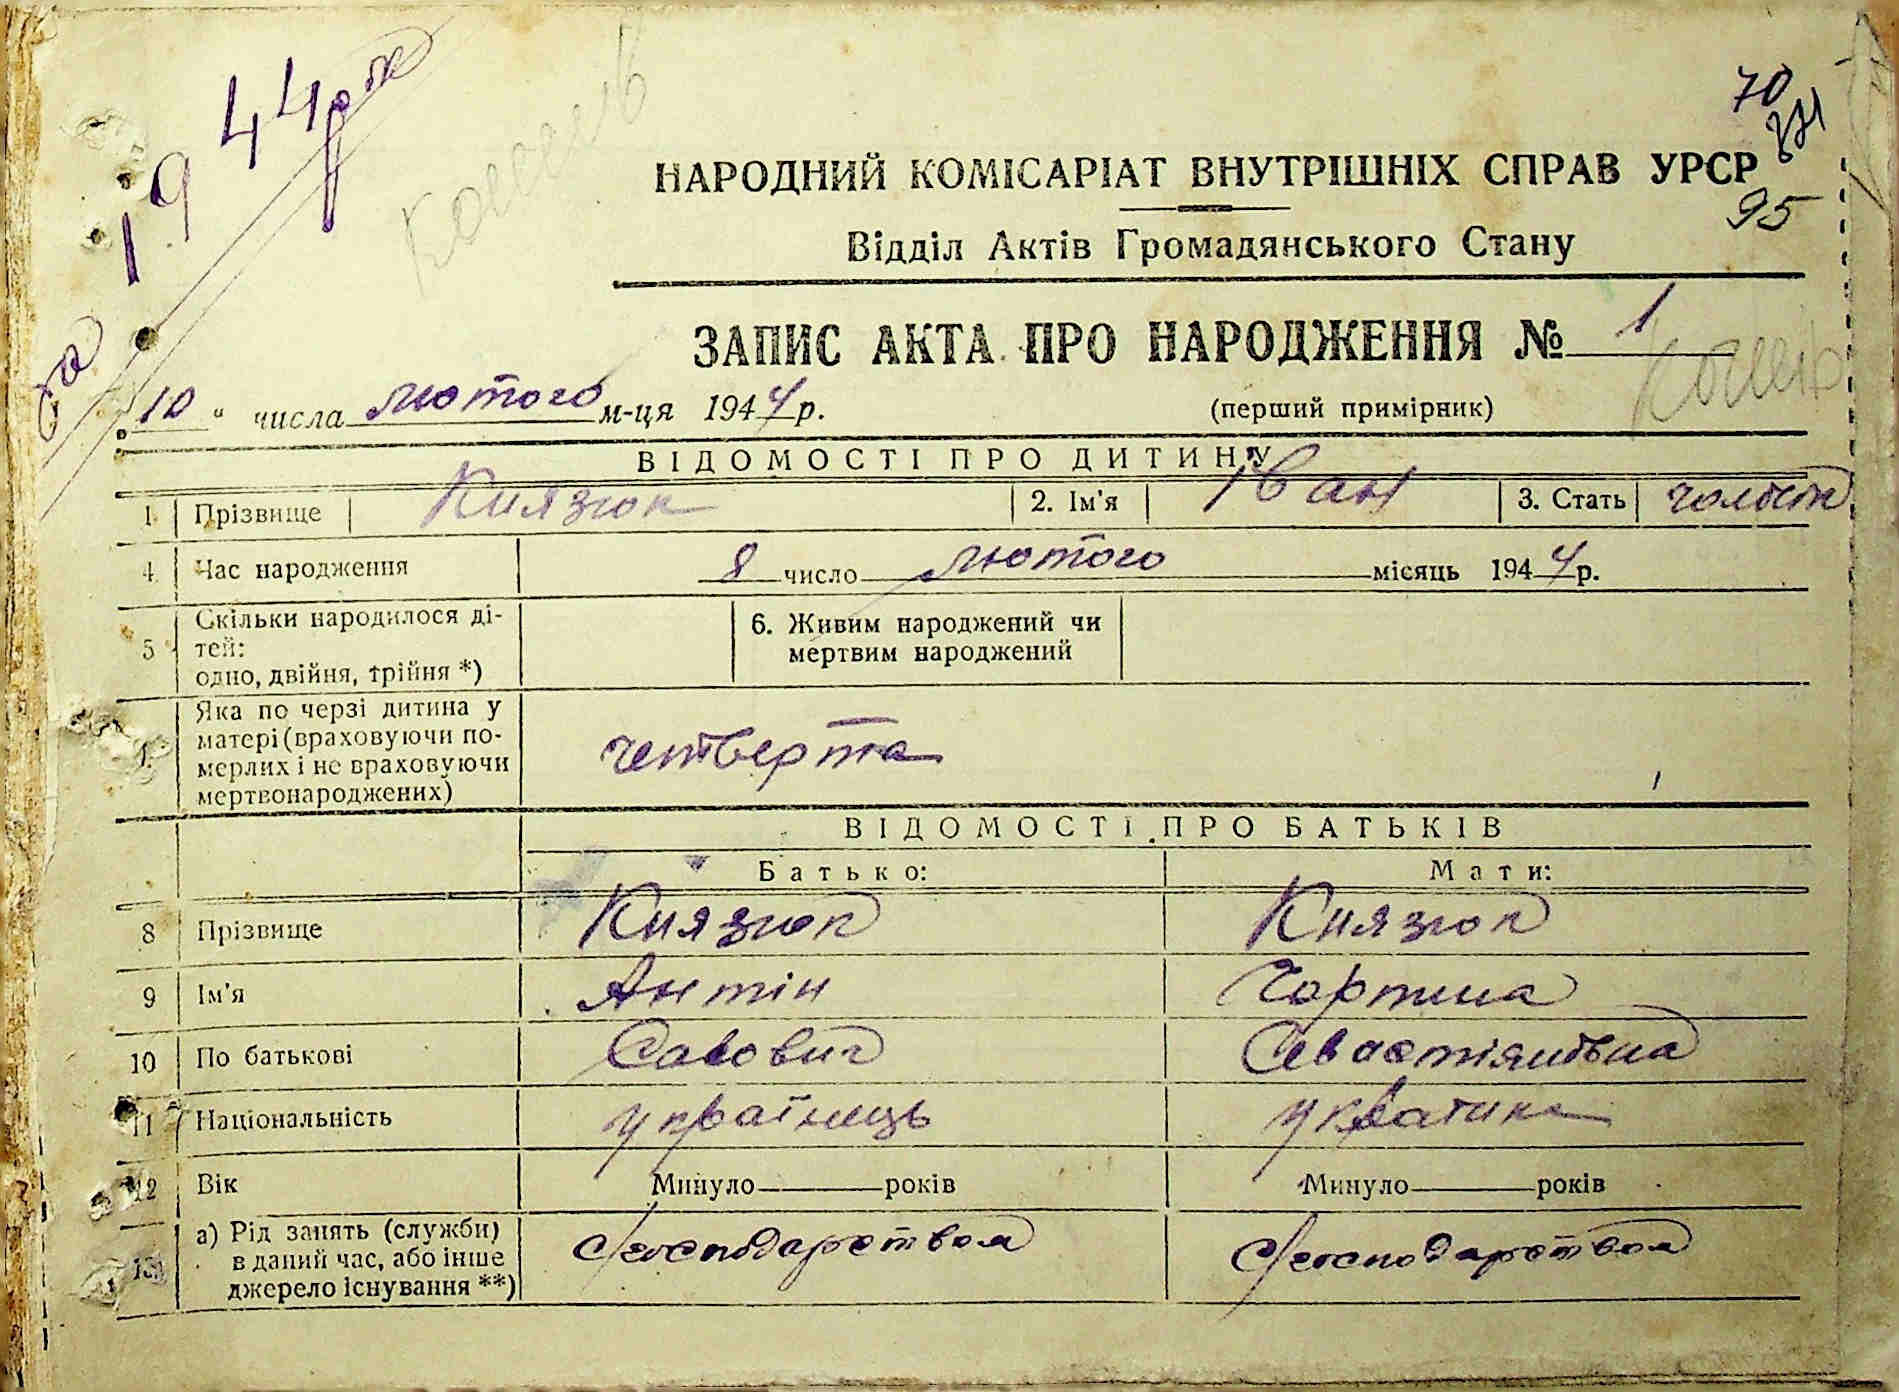 за 1944 рік
Кошів
70
271
95
НАРОДНИЙ КОМІСАРІАТ ВНУТРІШНІХ СПРАВ УРСР
Відділ Актів Громадянського Стану
ЗАПИС АКТА ПРО НАРОДЖЕННЯ № 1
Кошів
„10“ числа лютого м-ця 1944 р.
(перший примірник)
ВІДОМОСТІ ПРО ДИТИНУ
1 Прізвище Князюк 2. Ім'я Іван 3. Стать
4 Час народження 8 число лютого місяць 1944 р.
5 Скільки народилося ді-
тей:
одно, двійня, трійня *)
6. Живим народжений чи
мертвим народжений
Яка по черзі дитина у
матері (враховуючи по-
мерлих і не враховуючи
мертвонароджених)
четверта
ВІДОМОСТІ ПРО БАТЬКІВ
Батько: Мати:
8 Прізвище Князюк Князюк
9 Ім'я Антін
10 По батькові Савович Севастіянівна
11 Національність українець
12 Вік Минуло років Минуло років
13 а) Рід занять (служби)
в даний час, або інше
джерело існування **)
с/господарством с/господарством